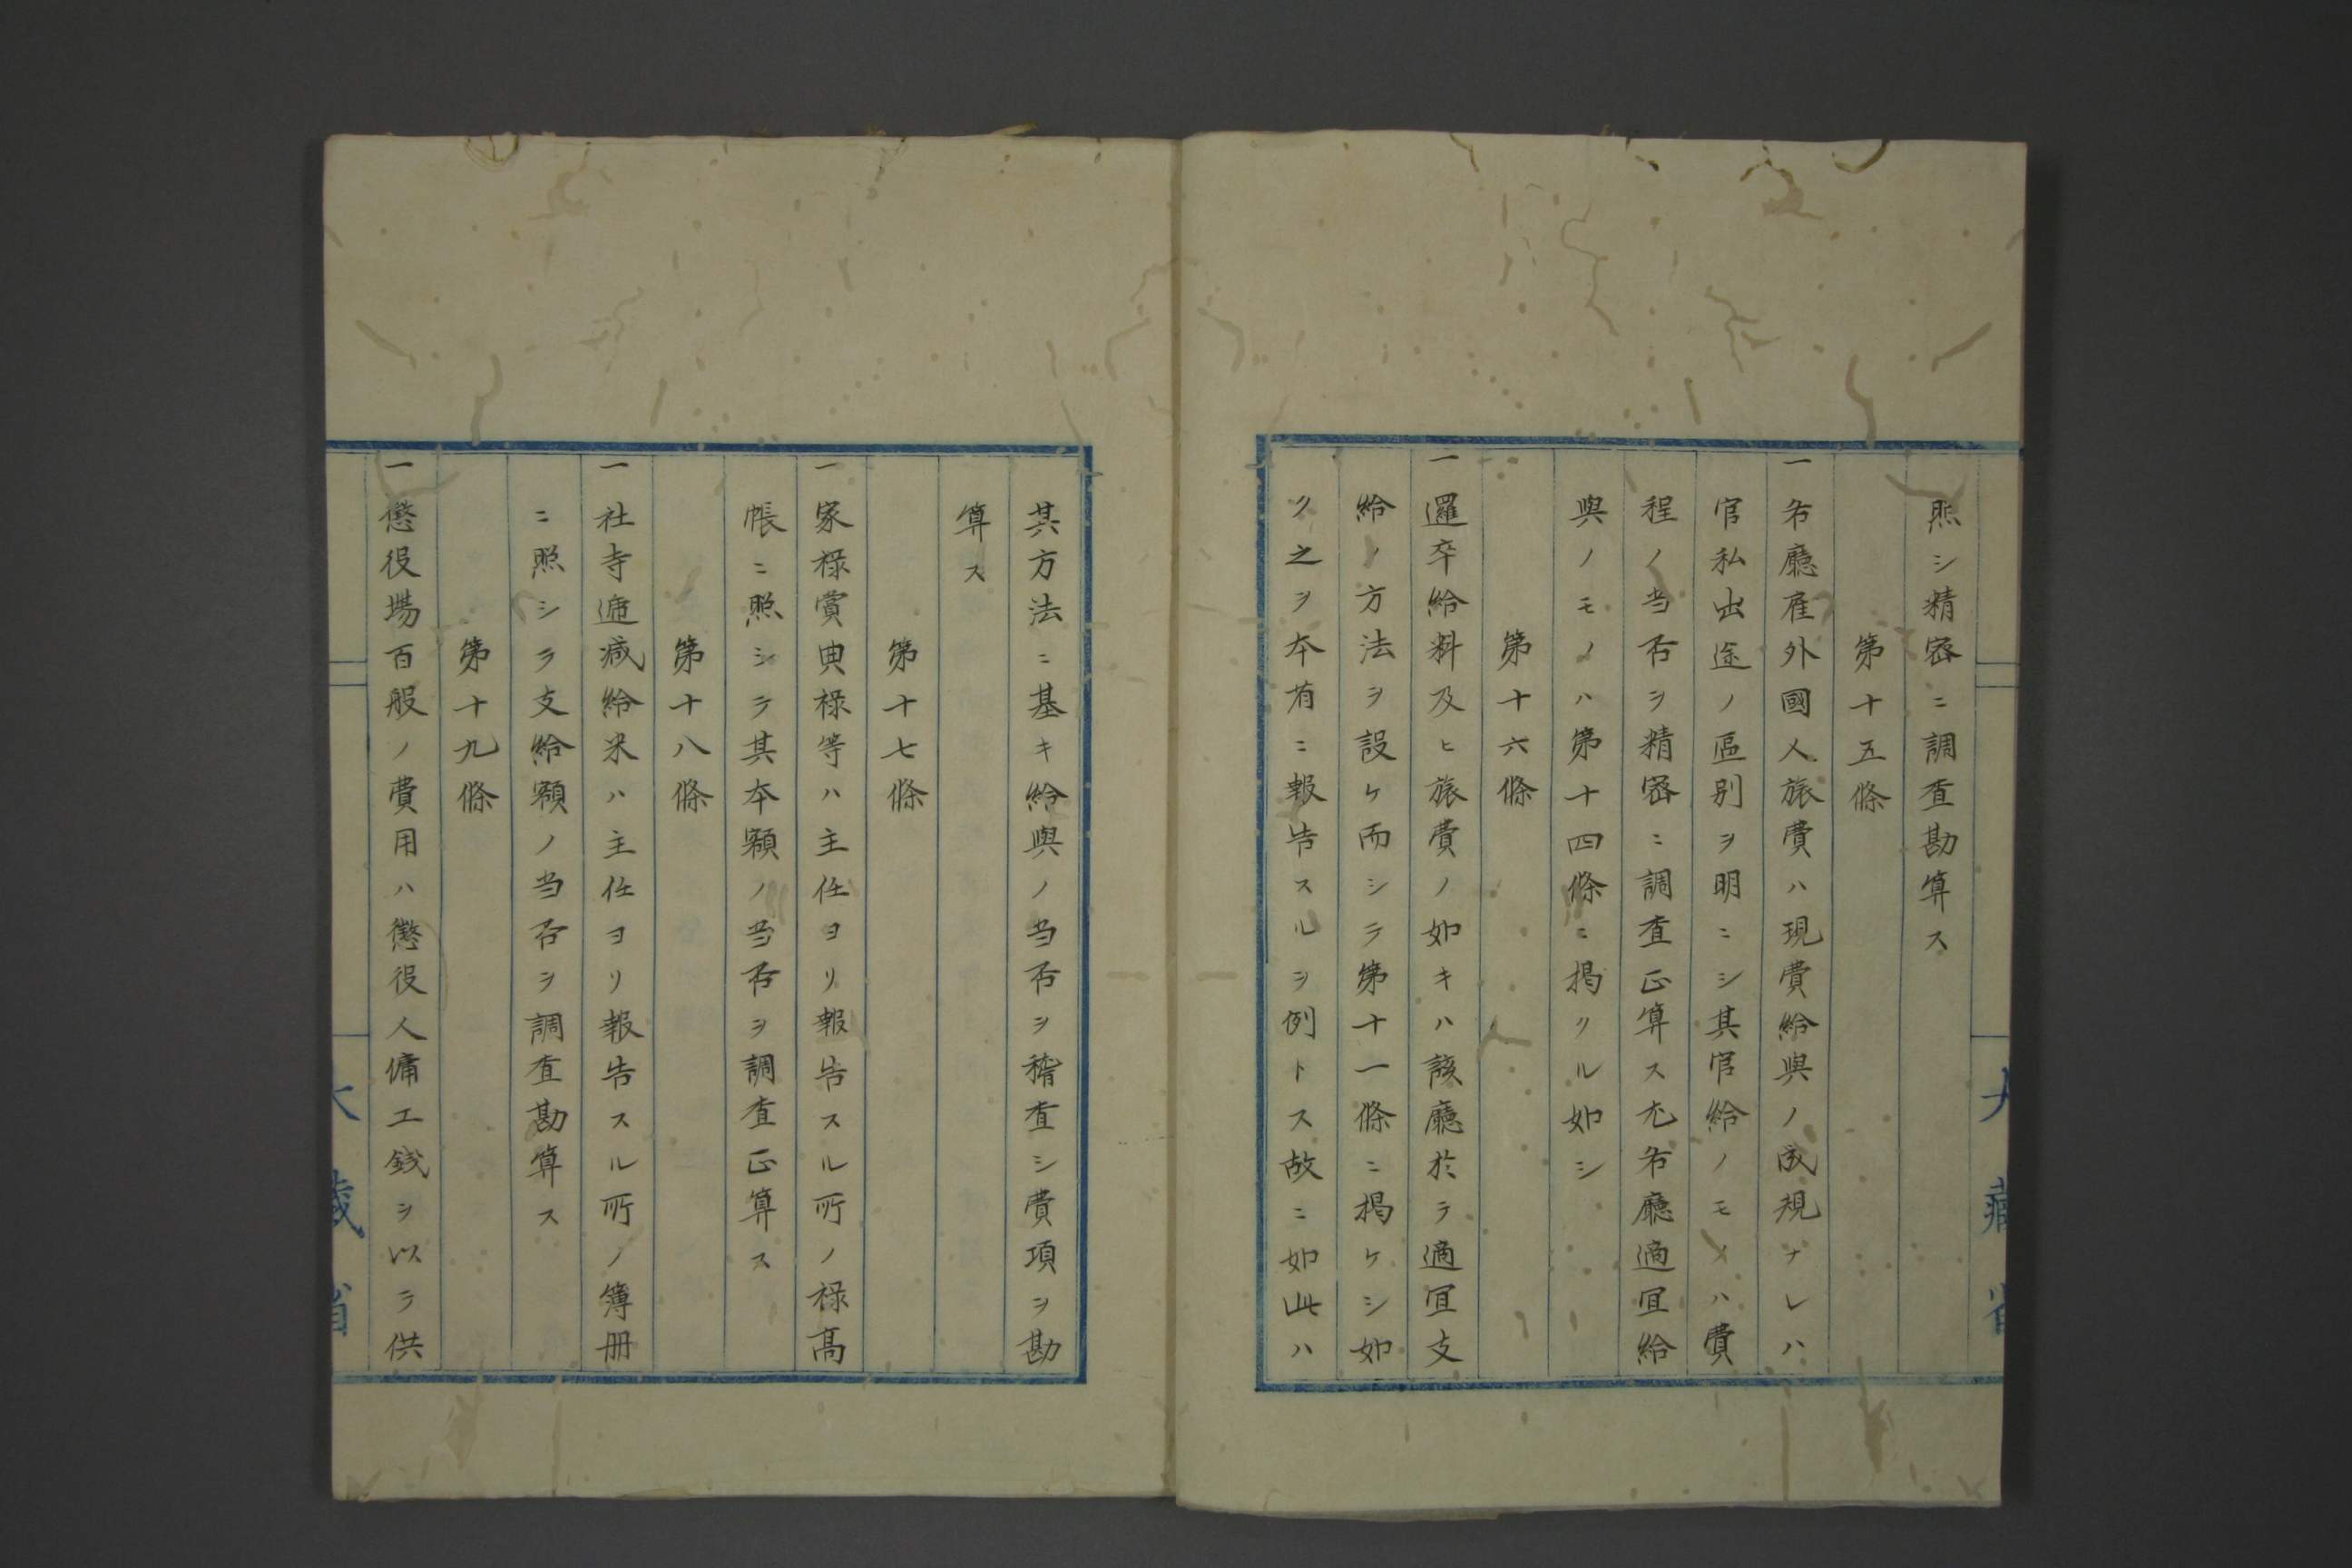 照シ精密ニ調査勘算ス
第十五條
一各廳雇外國人旅費ハ現費給與ノ成規ナレハ
官私出途ノ區別ヲ明ニシ其官給ノモノハ費
程ノ当否ヲ精密ニ調査正算ス尤各廳適宜給
與ノモノハ第十四條ニ掲クル如シ
第十六條
一邏卒給料及ヒ旅費ノ如キハ該廳於テ適宜支
給ノ方法ヲ設ケ而シテ第十一條ニ掲ケシ如
ク之ヲ本省ニ報告スルヲ例トス故ニ如此ハ
其方法ニ基キ給與ノ当否ヲ稽査シ費項ヲ勘
算ス
第十七條
一家禄賞典禄等ハ主任ヨリ報告スル所ノ禄高
帳ニ照シテ其本額ノ当否ヲ調査正算ス
第十八條
一社寺逓减給米ハ主任ヨリ報告スル所ノ簿冊
ニ照シテ支給額ノ当否ヲ調査勘算ス
第十九條
一懲役場百般ノ費用ハ懲役人傭工銭ヲ以テ供
大藏省